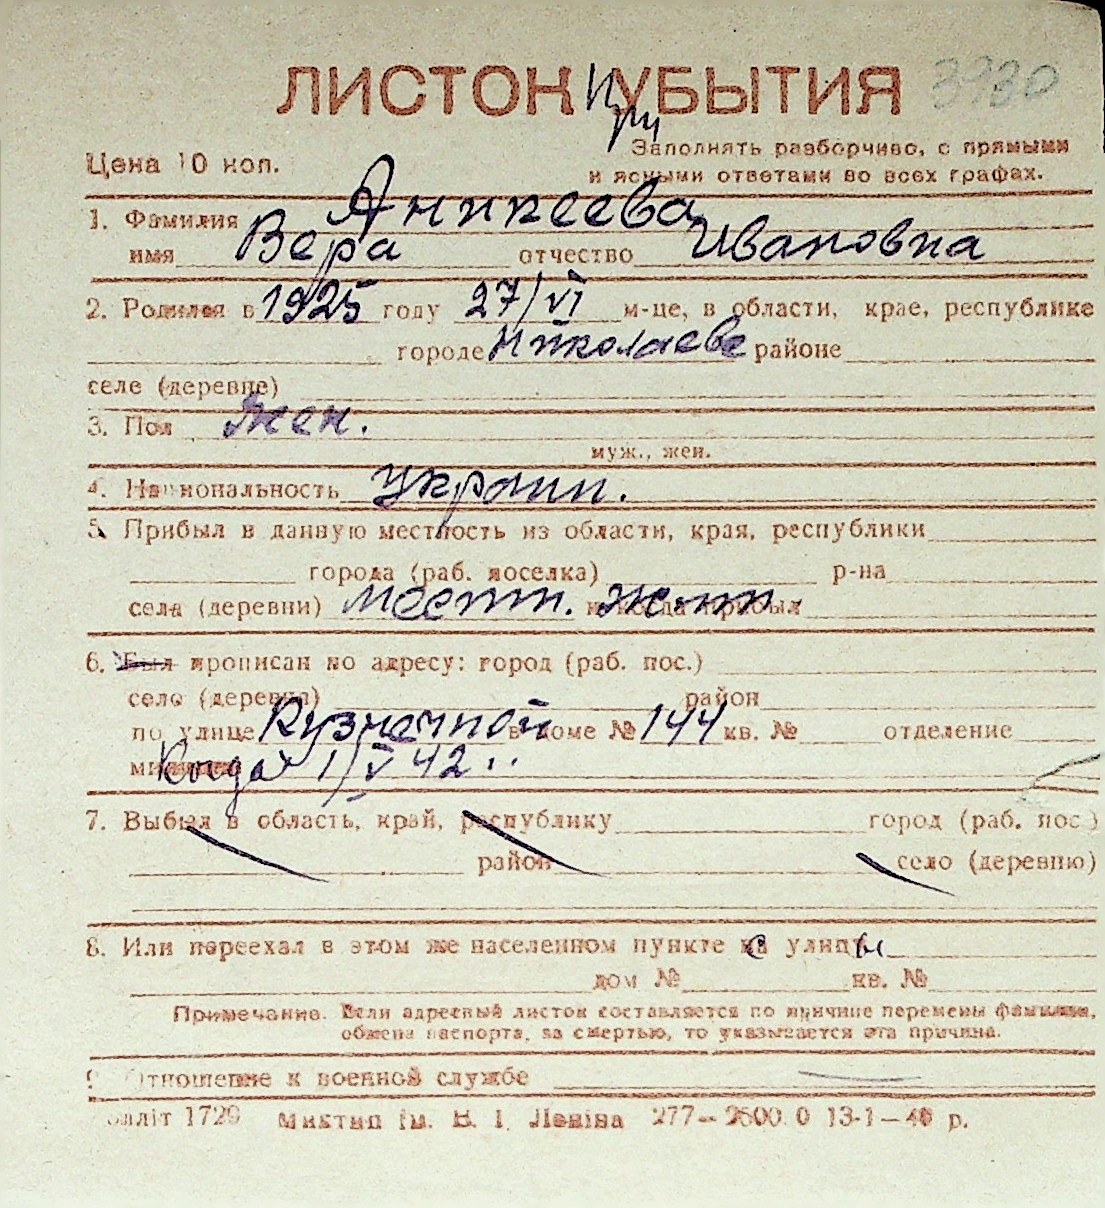 ЛИСТОК При УБЫТИЯ 3930
Цена 10 коп. Заполнять разборчиво, с прямыми
и ясными ответами во всех графах.
1. Фамилия Аникеева
имя Вера отчество Ивановна
2. Родился в 1925 году 27/VI м-це, в области, крае, республике
городе Николаеве районе
селе (деревне)
3. Пол жен.
муж., жен.
4. Национальность украин.
5. Прибыл в данную местность из области, края, республики
города (раб. поселка) р-на
села (деревни) местн. и когда прибыл жит.
6. Был прописан по адресу: город (раб. пос.)
село (деревня) район
по улице Кузнечной в доме № 144 кв. № отделение
Когда 1/V 42..
7. Выбыл в область, край, республику город (раб. пос.)
район село (деревню)
8. Или переехал в этом же населенном пункте с улицы
дом № кв. №
Примечание. Если адресный листок составляется по причине перемены фамилии,
обмена паспорта, за смертью, то указывается эта причина.
9. Отношение к военной службе
1729 Миктип ім. В. І. Леніна 277—2500.0 13-1—40 р.